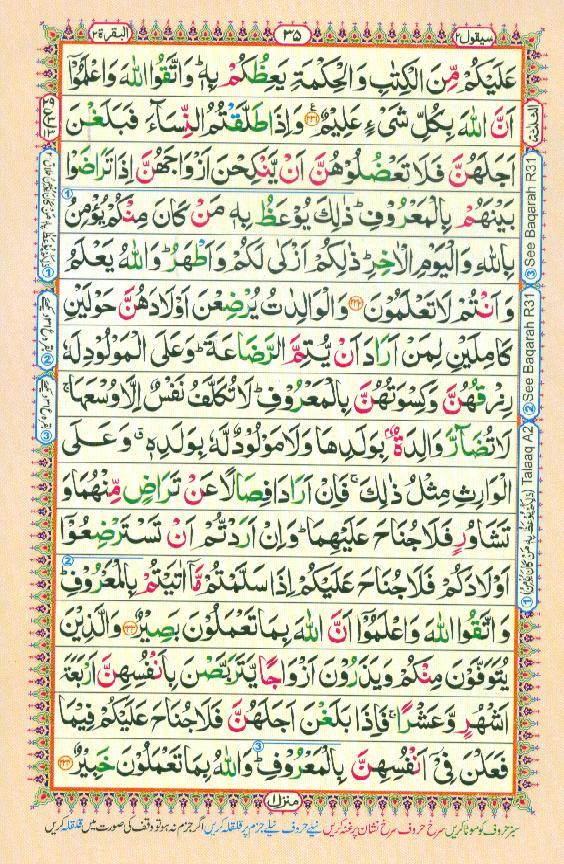 سيقول ٢
٣٥
البقرة ٢
عَلَيْكُمْ مِّنَ الْكِتٰبِ وَالْحِكْمَةِ يَعِظُكُمْ بِهٖ ؕ وَاتَّقُوا اللّٰهَ وَاعْلَمُوْۤا
اَنَّ اللّٰهَ بِكُلِّ شَیْءٍ عَلِيْمٌ ﴿٢٣١﴾ وَاِذَا طَلَّقْتُمُ النِّسَآءَ فَبَلَغْنَ
اَجَلَهُنَّ فَلَا تَعْضُلُوْهُنَّ اَنْ يَّنْكِحْنَ اَزْوَاجَهُنَّ اِذَا تَرَاضَوْا
بَيْنَهُمْ بِالْمَعْرُوْفِ ؕ ذٰلِكَ يُوْعَظُ بِهٖ مَنْ كَانَ مِنْكُمْ يُؤْمِنُ
بِاللّٰهِ وَالْيَوْمِ الْاٰخِرِ ؕ ذٰلِكُمْ اَزْكٰى لَكُمْ وَاَطْهَرُ ؕ وَاللّٰهُ يَعْلَمُ
وَاَنْتُمْ لَا تَعْلَمُوْنَ ﴿٢٣٢﴾ وَالْوَالِدٰتُ يُرْضِعْنَ اَوْلَادَهُنَّ حَوْلَيْنِ
كَامِلَيْنِ لِمَنْ اَرَادَ اَنْ يُّتِمَّ الرَّضَاعَةَ ؕ وَعَلَى الْمَوْلُوْدِ لَهٗ
رِزْقُهُنَّ وَكِسْوَتُهُنَّ بِالْمَعْرُوْفِ ؕ لَا تُكَلَّفُ نَفْسٌ اِلَّا وُسْعَهَا ۚ
لَا تُضَآرَّ وَالِدَةٌۢ بِوَلَدِهَا وَلَا مَوْلُوْدٌ لَّهٗ بِوَلَدِهٖ ۗ وَعَلَى
الْوَارِثِ مِثْلُ ذٰلِكَ ۚ فَاِنْ اَرَادَا فِصَالًا عَنْ تَرَاضٍ مِّنْهُمَا وَ
تَشَاوُرٍ فَلَا جُنَاحَ عَلَيْهِمَا ؕ وَاِنْ اَرَدْتُّمْ اَنْ تَسْتَرْضِعُوْۤا
اَوْلَادَكُمْ فَلَا جُنَاحَ عَلَيْكُمْ اِذَا سَلَّمْتُمْ مَّاۤ اٰتَيْتُمْ بِالْمَعْرُوْفِ ؕ
وَاتَّقُوا اللّٰهَ وَاعْلَمُوْۤا اَنَّ اللّٰهَ بِمَا تَعْمَلُوْنَ بَصِيْرٌ ﴿٢٣٣﴾ وَالَّذِيْنَ
يُتَوَفَّوْنَ مِنْكُمْ وَيَذَرُوْنَ اَزْوَاجًا يَّتَرَبَّصْنَ بِاَنْفُسِهِنَّ اَرْبَعَةَ
اَشْهُرٍ وَّعَشْرًا ۚ فَاِذَا بَلَغْنَ اَجَلَهُنَّ فَلَا جُنَاحَ عَلَيْكُمْ فِيْمَا
فَعَلْنَ فِیْۤ اَنْفُسِهِنَّ بِالْمَعْرُوْفِ ؕ وَاللّٰهُ بِمَا تَعْمَلُوْنَ خَبِيْرٌ ﴿٢٣٤﴾
③ See Baqarah R31
② See Baqarah R31
① Talaaq A2
منزل ١
سبز حروف کو موٹا کریں سرخ حروف سرخ نشان پر غنہ کریں نیلے حروف نیلے جزم پر قلقلہ کریں اگر جزم نہ ہو تو وقف کی صورت میں قلقلہ کریں